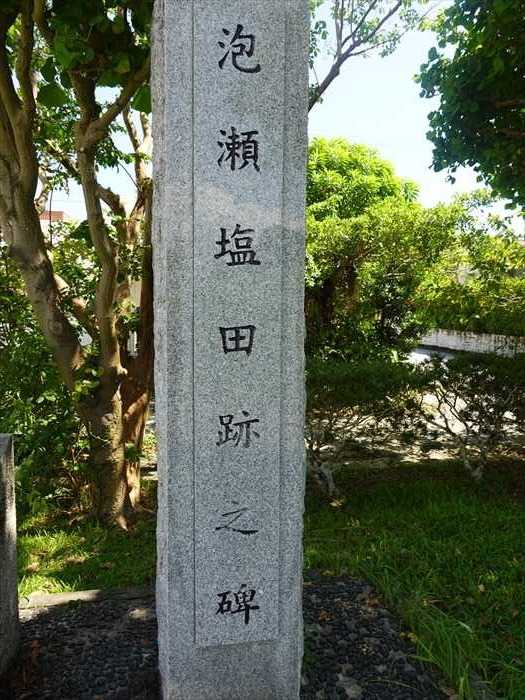 泡瀬塩田跡之碑